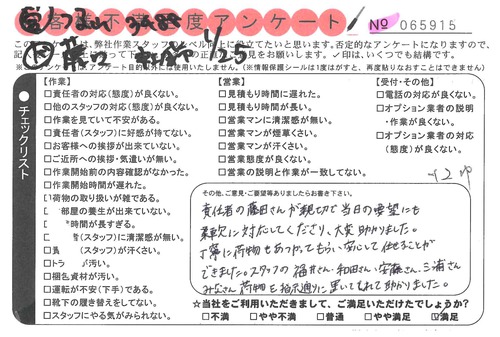 お客様不満足度アンケート
No 065915
このアンケートは、弊社作業スタッフのレベル向上に役立てたいと思います。否定的なアンケートになりますので、
ご意見をお願いします。✓印は、いくつでも結構です。
アンケート目的以外には使用いたしません。(※情報保護シールは1度はがすと、再度貼りなおすことはできません)
1/25
チェックリスト
【作業】
□責任者の対応(態度)が良くない。
□他のスタッフの対応(態度)が良くない。
□作業を見ていて不安がある。
□責任者(スタッフ)に好感が持てない。
□お客様への挨拶が出来ていない。
□ご近所への挨拶・気遣いが無い。
□作業開始前の内容確認がなかった。
□作業開始時間が遅れた。
荷物の取り扱いが雑である。
部屋の養生が出来ていない。
時間が長すぎる。
(スタッフ)に清潔感が無い。
(スタッフ)が汗くさい。
□梱包資材が汚い。
□運転が不安(下手)である。
□靴下の履き替えをしてない。
□スタッフにやる気がみられない。
【営業】
□見積もり時間に遅れた。
□見積もり時間が長い。
□営業マンに清潔感が無い。
□営業マンが煙草くさい。
□営業マンが汗くさい。
□営業態度が良くない。
□営業の説明と作業が一致してない。
【受付・その他】
□電話の対応が良くない。
□オプション業者の説明
・作業が良くない。
□オプション業者の対応
(態度)が良くない。
その他、ご意見・ご要望等ありましたらお書き下さい。
責任者の藤田さんが親切で当日の要望にも
柔軟に対応してくださり、大変助かりました。
丁寧に荷物もあつかってもらい、安心して任せることが
できました。スタッフの福井さん、和田さん、安藤さん、三浦さん
みなさん荷物も指示通りに置いてくれて助かりました。
★当社をご利用いただきまして、ご満足いただけたでしょうか?
□不満 □やや不満 □普通 □やや満足 ☑満足